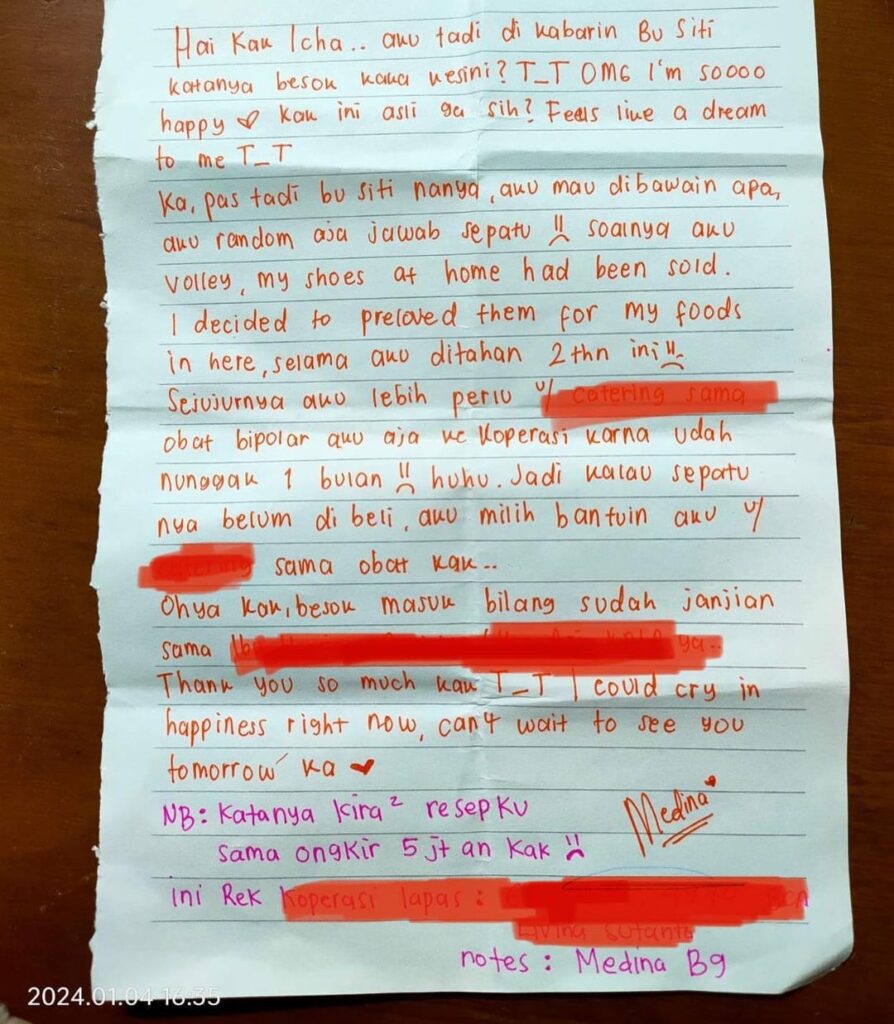 Hai Kak Icha.. aku tadi di kabarin Bu Siti
katanya besok kaka kesini? T_T OMG I'm soooo
happy ♡ kak ini asli ga sih? Feels like a dream
to me T_T
Ka, pas tadi bu siti nanya, aku mau dibawain apa,
aku random aja jawab sepatu !! soalnya aku
volley, my shoes at home had been sold.
I decided to preloved them for my foods
in here, selama aku ditahan 2thn ini !!
Sejujurnya aku lebih perlu u/ catering sama
obat bipolar aku aja ke koperasi karna udah
nunggak 1 bulan !! huhu. Jadi kalau sepatu
nya belum di beli, aku milih bantuin aku u/
sama obat kak..
Ohya kak, besok masuk bilang sudah janjian
sama ya..
Thank you so much kak T_T I could cry in
happiness right now, can't wait to see you
tomorrow ka ♥
Medina
NB: Katanya kira² resepku
sama ongkir 5 jt an kak !!
ini Rek koperasi lapas :
notes : Medina B9
2024.01.04 16:35